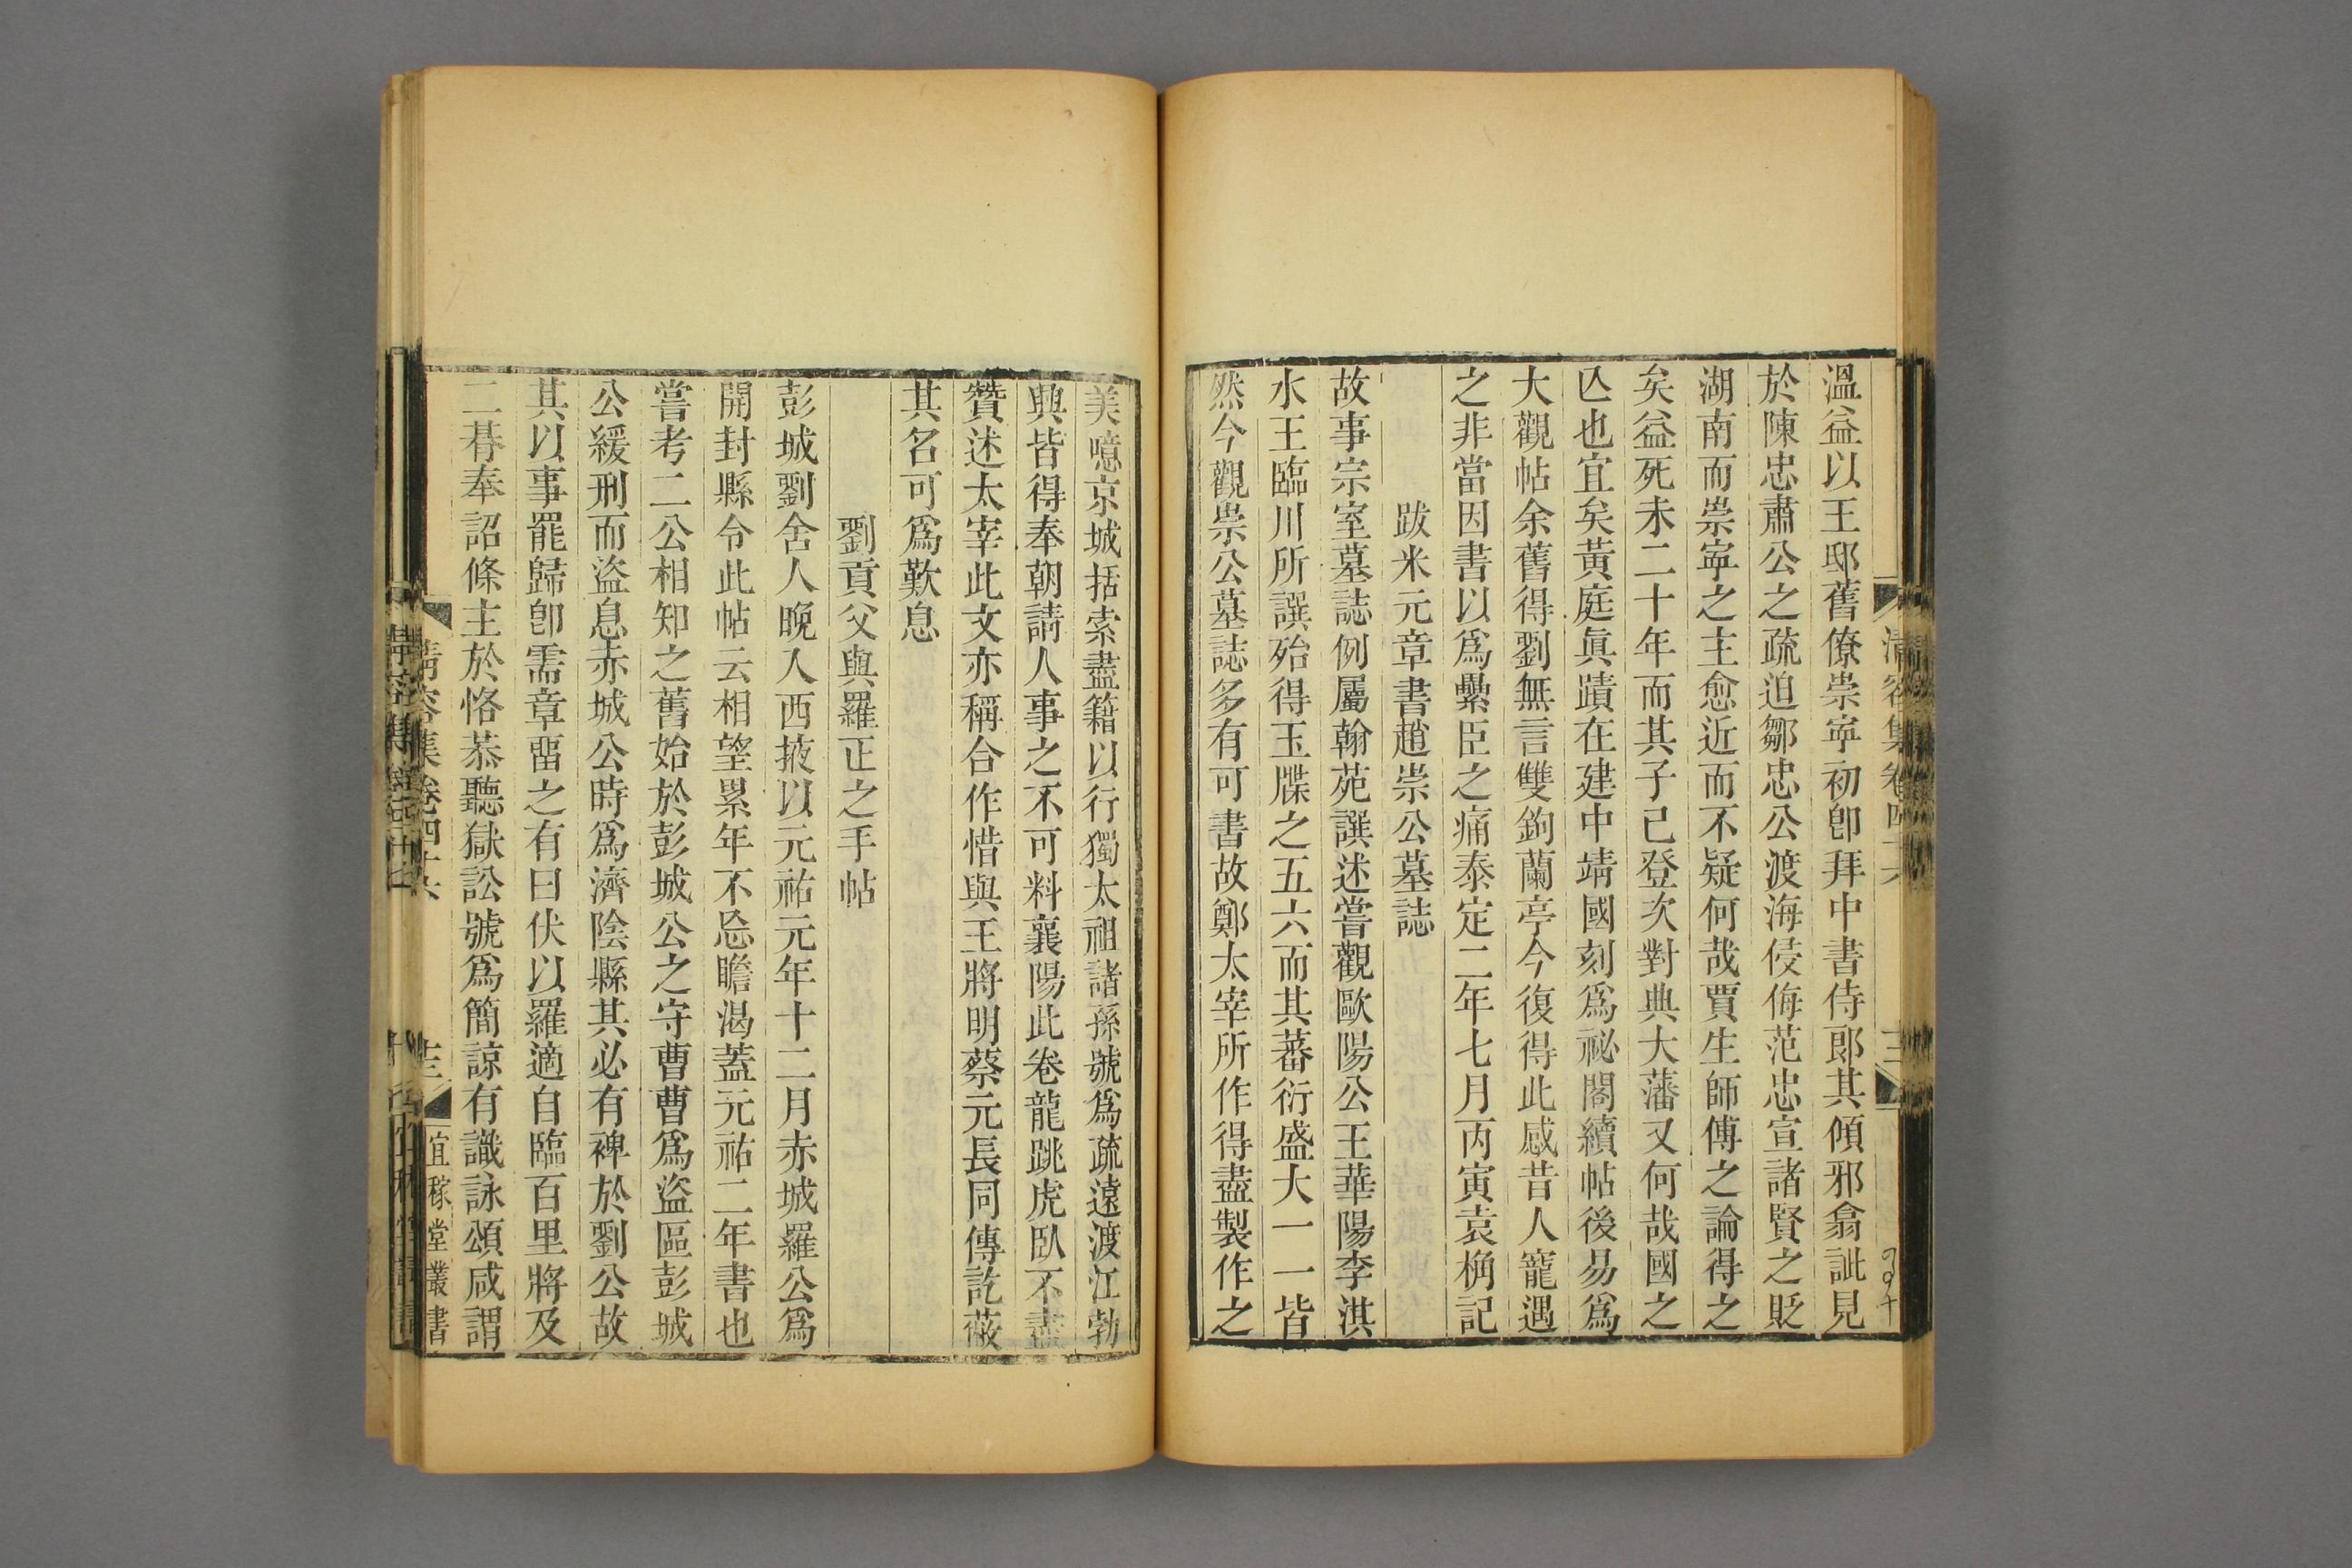 溫益以王邸舊僚崇寧初卽拜中書侍郞其傾邪翕訿見
於陳忠肅公之疏迫鄒忠公渡海侵侮范忠宣諸賢之貶
湖南而崇寧之主愈近而不疑何哉賈生師傅之論得之
矣益死未二十年而其子己登次對典大藩又何哉國之
亾也宜矣黃庭眞蹟在建中靖國刻爲祕閣續帖後易爲
大觀帖余舊得劉無言雙鉤蘭亭今復得此感昔人寵遇
之非當因書以爲纍臣之痛泰定二年七月丙寅袁桷記
跋米元章書趙崇公墓誌
故事宗室墓誌例屬翰苑譔述嘗觀歐陽公王華陽李淇
水王臨川所譔殆得玉牒之五六而其蕃衍盛大一一皆
然今觀崇公墓誌多有可書故鄭太宰所作得盡製作之
美噫京城括索盡籍以行獨太祖諸孫號爲疏遠渡江勃
興皆得奉朝請人事之不可料襄陽此卷龍跳虎臥不盡
贊述太宰此文亦稱合作惜與王將明蔡元長同傳訖蔽
其名可爲歎息
劉貢父與羅正之手帖
彭城劉舍人晩入西掖以元祐元年十二月赤城羅公爲
開封縣令此帖云相望累年不忘瞻渴蓋元祐二年書也
嘗考二公相知之舊始於彭城公之守曹曹爲盜區彭城
公緩刑而盜息赤城公時爲濟陰縣其必有裨於劉公故
其以事罷歸卽需章畱之有曰伏以羅適自臨百里將及
二朞奉詔條主於恪恭聽獄訟號爲簡諒有識詠頌咸謂
淸容集卷四十六
十三
宜稼堂叢書